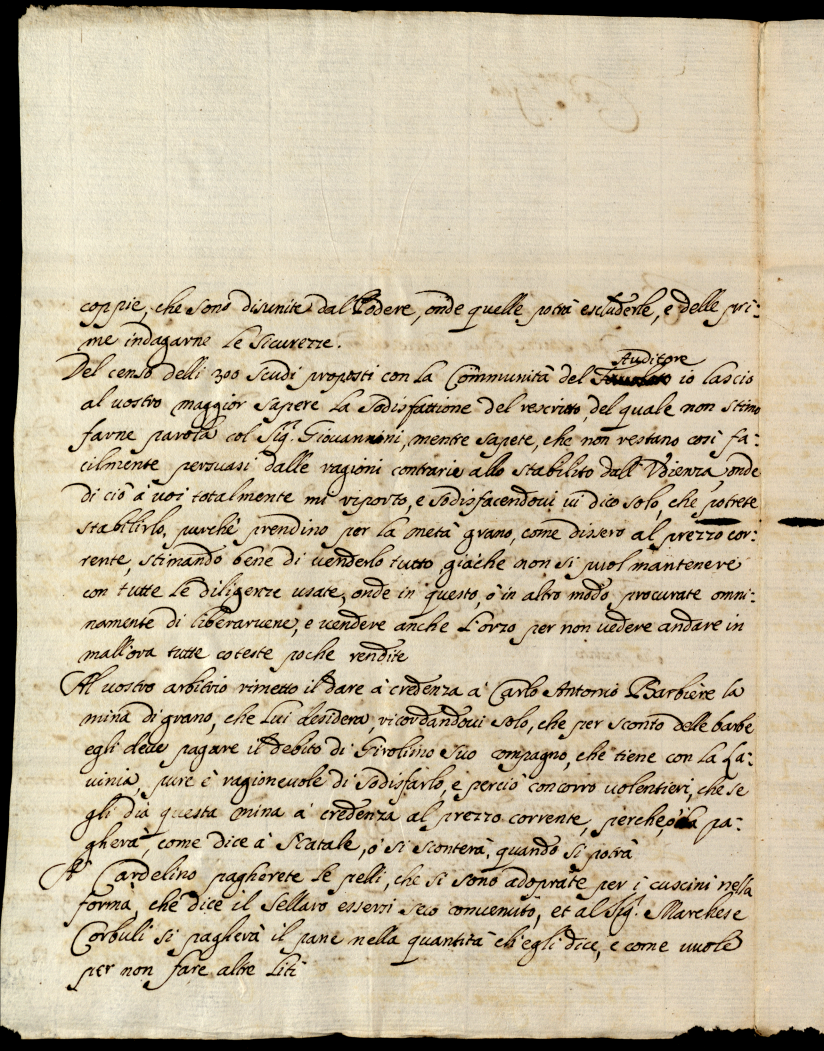 coppie, che sono disunite dal Podere, onde quelle potrà escluderle, e delle pri:
me indagarne le sicurezze.
Auditore
Del censo delli 300 scudi proposti con la Communità del io lascio
al vostro maggior sapere la sodisfattione del rescritto, del quale non stimo
farne parola col Sig.r Giovannini, mentre sapete, che non restano così fa:
cilmente persuasi dalle ragioni contrarie allo stabilito dall'Udienza, onde
di ciò à voi totalmente mi riporto, e sodisfacendovi vi dico solo, che potrete
stabilirlo, purche prendino per la metà grano, come dissero al prezzo cor:
rente, stimando bene di venderlo tutto, giache non si puol mantenere
con tutte le diligenze usate, onde in questo, ò in altro modo procurate omni:
namente di liberarvene, e vendere anche l'orzo per non vedere andare in
mall'ora tutte coteste poche rendite
Al vostro arbitrio rimetto il dare à credenza à Carlo Antonio Barbiere la
mina di grano, che lui desidera, ricordandovi solo, che per sconto delle barbe
egli deve pagare il debito di Girolimo suo compagno, che tiene con la La:
vinia, pure è ragionevole di sodisfarlo, e perciò concorro volentieri, che se
gli dia questa mina à credenza al prezzo corrente, perche, ò la pa:
gherà, come dice à Natale, ò si sconterà, quando si potrà
A Cardelino pagherete le pelli, che si sono adoprate per i cuscini nella
forma, che dice il Sellaro essersi seco convenuto, et al Sig.r Marchese
Corbuli si pagherà il pane nella quantità ch'egli dice, e come vuole
per non fare altre liti